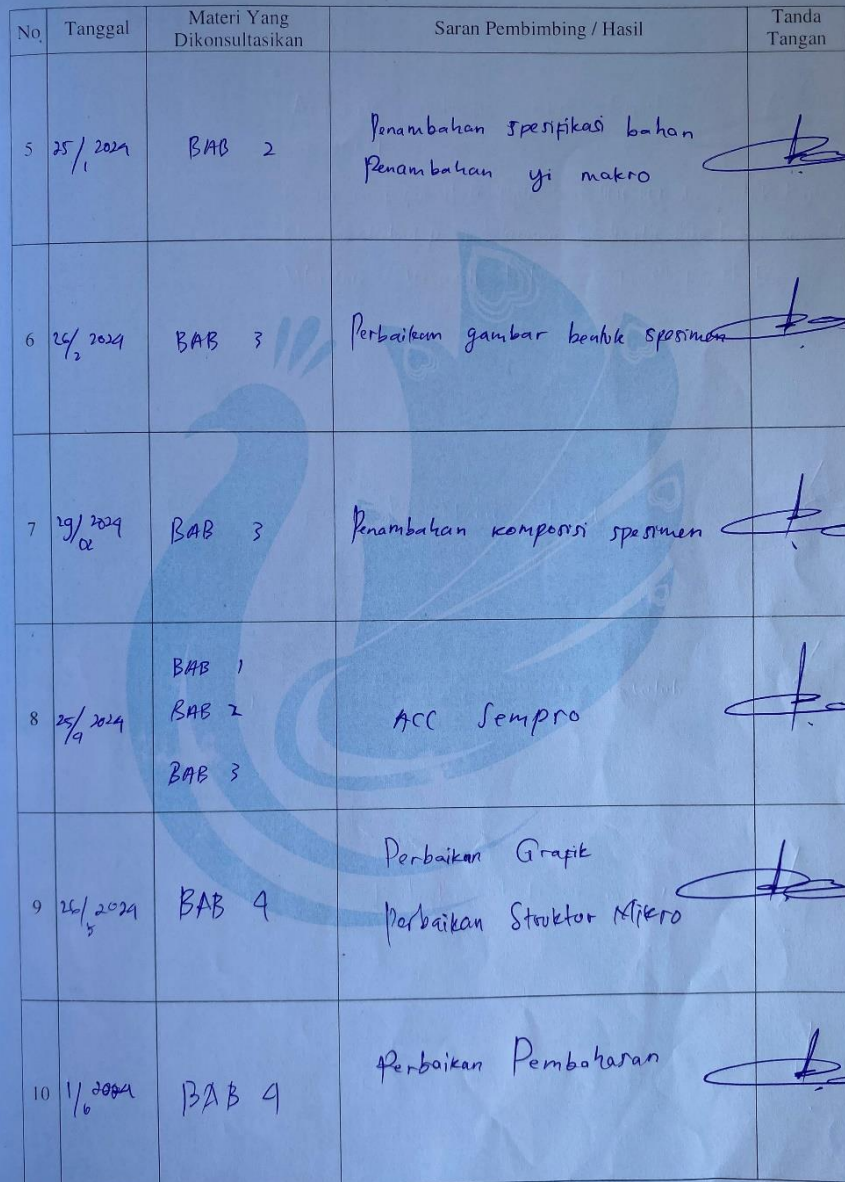 No. Tanggal Materi Yang Dikonsultasikan Saran Pembimbing / Hasil Tanda Tangan
5 25/1 2024 BAB 2 Penambahan spesifikasi bahan
Penambahan yi makro
6 26/2 2024 BAB 3 Perbaikan gambar bentuk spesimen
7 29/02 2024 BAB 3 Penambahan komposisi spesimen
BAB 1
8 25/4 2024 BAB 2 ACC Sempro
BAB 3
Perbaikan Grafik
9 26/5 2024 BAB 4
Perbaikan Struktor Mikro
Perbaikan Pembahasan
10 1/6 2024 BAB 4